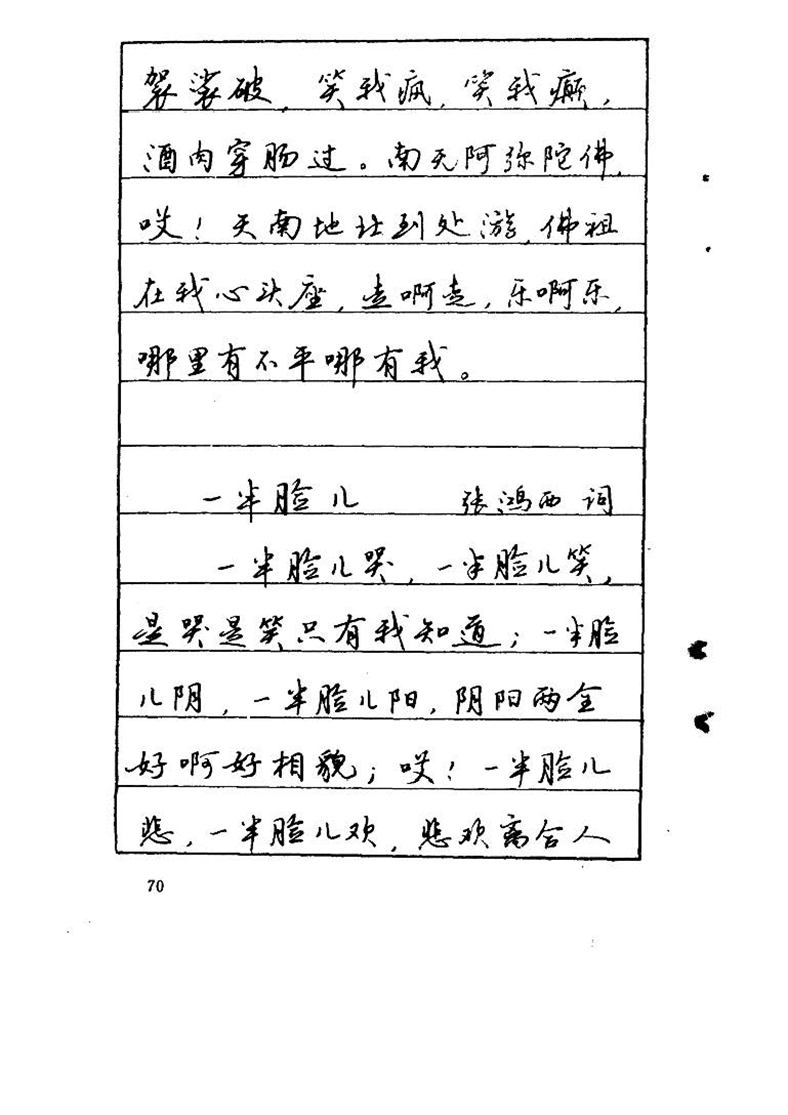 袈裟破，笑我疯，笑我癫，
酒肉穿肠过。南无阿弥陀佛，
哎！天南地北到处游，佛祖
在我心头座，走啊走，乐啊乐，
哪里有不平哪有我。
一半脸儿 张鸿西 词
一半脸儿哭，一半脸儿笑，
是哭是笑只有我知道；一半脸
儿阴，一半脸儿阳，阴阳两全
好啊好相貌；哎！一半脸儿
悲，一半脸儿欢，悲欢离合人
70